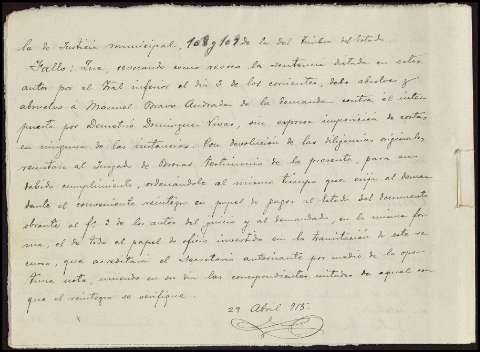 la de Justicia municipal, 108 y 109 de la del Timbre del Estado.
Fallo: Que, revocando como revoco la sentencia dictada en estos
autos por el Tral inferior el día 3 de los corrientes, debo absolver y
absuelvo á Manuel Bravo Andrada de la demanda contra él inter
puesta por Demetrio Dominguez Vivas, sin expresa imposición de costas
en ninguna de las instancias. Con devolución de las diligencias originales
remítase al Juzgado de Brozas testimonio de la presente, para su
debido cumplimiento, ordenándole al mismo tiempo que exija al deman
dante el conveniente reintegro en papel de pagos al Estado del documento
obrante al fº 2 de los autos del juicio y al demandado, en la misma for
ma, el de todo el papel de oficio invertido en la tramitación de este re
curso, que acreditará el Secretario autorizante por medio de la opor
tuna nota, uniendo en su día las correspondientes mitades de aquel con
que el reintegro se verifique.
29 Abril 915.